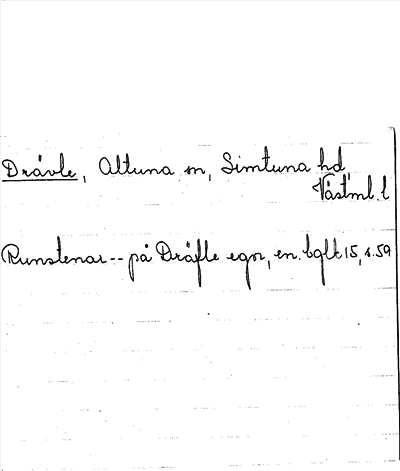 Drävle, Altuna sn, Simtuna hd
Västml. l
Runstenar -- på Dräfle egor, en. bglt 15, s. 59